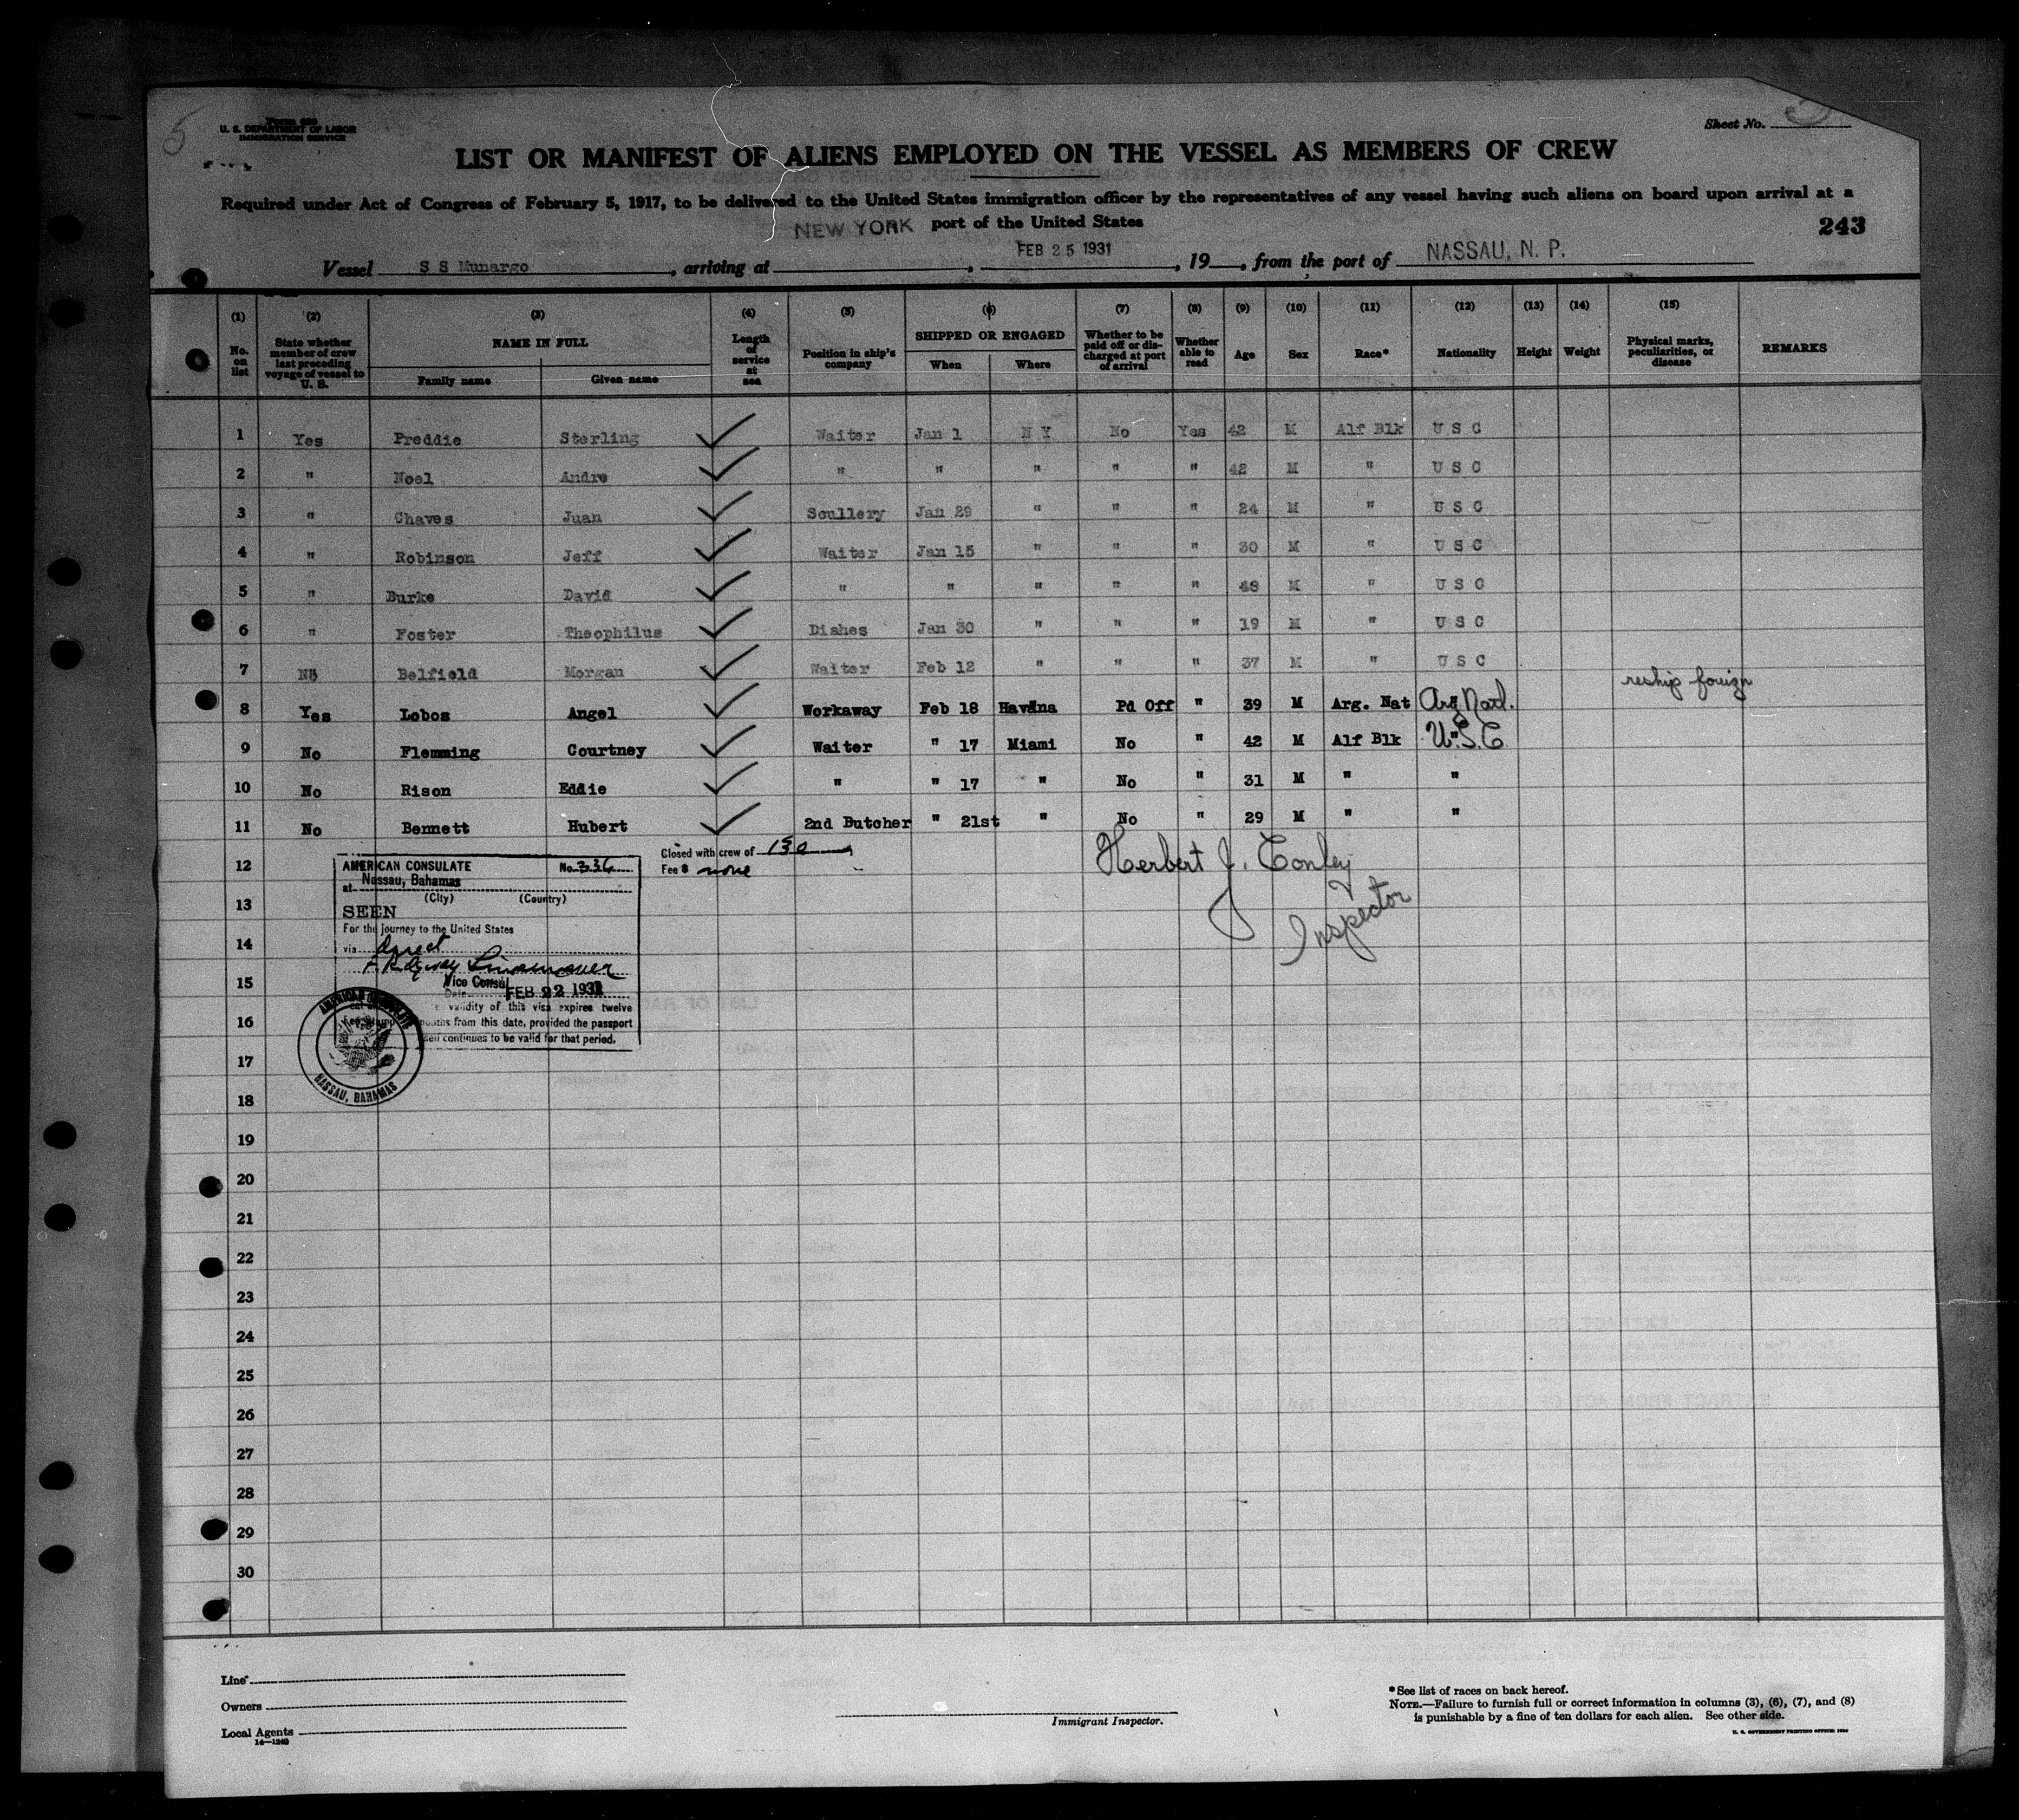 5
Form 680
U. S. DEPARTMENT OF LABOR
IMMIGRATION SERVICE
Sheet No.
LIST OR MANIFEST OF ALIENS EMPLOYED ON THE VESSEL AS MEMBERS OF CREW
Required under Act of Congress of February 5, 1917, to be delivered to the United States immigration officer by the representatives of any vessel having such aliens on board upon arrival at a
port of the United States
243
Vessel S S Munargo, arriving at NEW YORK, FEB 25 1931, 19, from the port of NASSAU, N. P.
(1) (2) (3) (4) (5) (6) (7) (8) (9) (10) (11) (12) (13) (14) (15)
No. on list
State whether member of crew last preceding voyage of vessel to U. S.
NAME IN FULL
Family name Given name
Length of service at sea
Position in ship's company
SHIPPED OR ENGAGED
When Where
Whether to be paid off or discharged at port of arrival
Whether able to read
Age
Sex
Race*
Nationality
Height
Weight
Physical marks, peculiarities, or disease
REMARKS
1 Yes Preddie Sterling Waiter Jan 1 N Y No Yes 42 M Alf Blk U S C
2 " Noel Andre " " " " " 42 M " U S C
3 " Chaves Juan Scullery Jan 29 " " " 24 M " U S C
4 " Robinson Jeff Waiter Jan 15 " " " 30 M " U S C
5 " Burke David " " " " " 48 M " U S C
6 " Foster Theophilus Dishes Jan 30 " " " 19 M " U S C
7 No Belfield Morgan Waiter Feb 12 " " " 37 M " U S C
8 Yes Lobos Angel Workaway Feb 18 Havana Pd Off " 39 M Arg. Nat Arg Natl. reship foreign
9 No Flemming Courtney Waiter " 17 Miami No " 42 M Alf Blk U.S.C
10 No Rison Eddie " " 17 " No " 31 M " "
11 No Bennett Hubert 2nd Butcher " 21st " No " 29 M " "
Closed with crew of 130
Fee $ none
Herbert J. Conley
Inspector
AMERICAN CONSULATE No. 336
at Nassau, Bahamas
(City) (Country)
SEEN
For the journey to the United States
via Direct
Vice Consul
Date FEB 22 1931
validity of this visa expires twelve
months from this date, provided the passport
continues to be valid for that period.
AMERICAN CONSULATE
NASSAU, BAHAMAS
12
13
14
15
16
17
18
19
20
21
22
23
24
25
26
27
28
29
30
Line
Owners
Local Agents
14—1240
Immigrant Inspector.
*See list of races on back hereof.
NOTE.—Failure to furnish full or correct information in columns (3), (6), (7), and (8)
is punishable by a fine of ten dollars for each alien. See other side.
U. S. GOVERNMENT PRINTING OFFICE: 1930